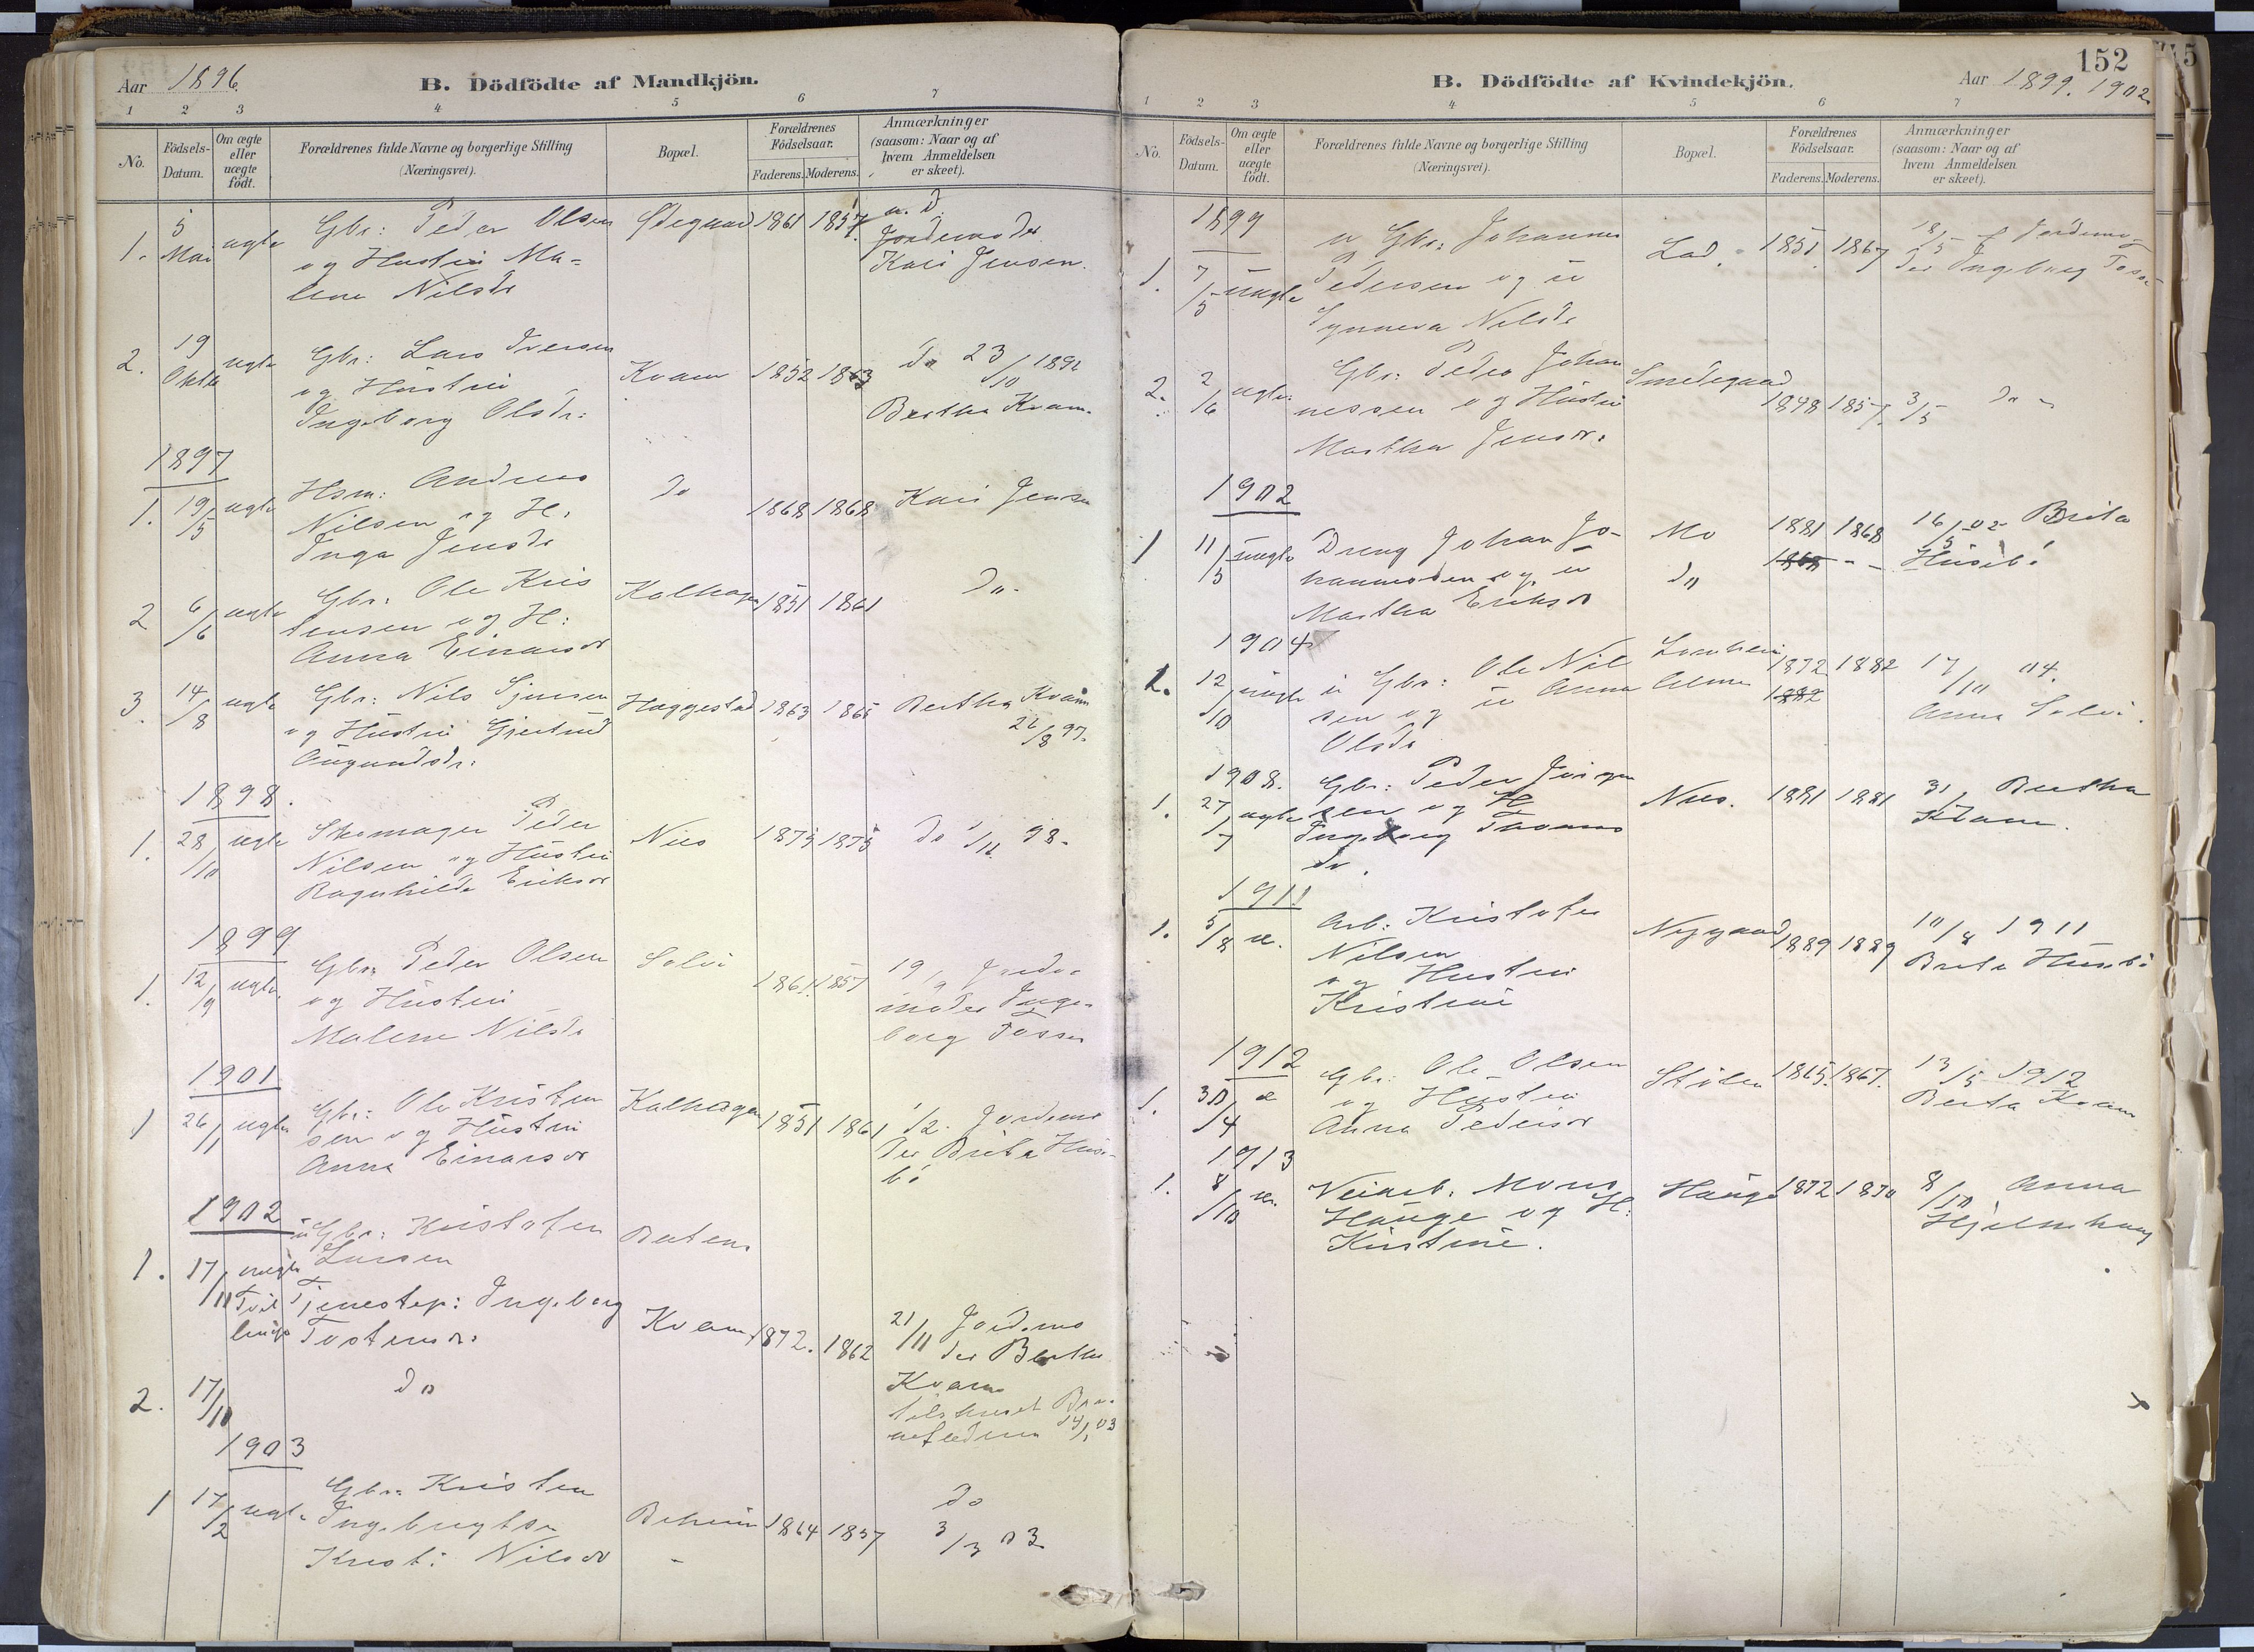 Aar 1896.
B. Dödfödte af Mandkjön.
1 2 3 4 5 6 7
No.
Födsels-Datum.
Om ægte eller uægte födt.
Forældrenes fulde Navne og borgerlige Stilling (Næringsvei).
Bopæl.
Forældrenes Födselsaar.
Faderens. Moderens.
Anmærkninger (saasom: Naar og af hvem Anmeldelsen er skeet).
1. 5 Mai ægte Gbr: Peder Olsen Ødegaard 1861 1857
og Hustru Ma=
lene Nilsdr
Jordemoder
Kari Jensen.
2. 19 Oktb ægte Gbr: Lars Iversen Kvam 1852 1863 do 23/10
og Hustru
Ingeborg Olsdr:
Bertha Kvam.
1897
1. 19/5 ægte Hsm: Andreas do 1868 1868 Kari Jensen
Nilsen og H:
Inga Jensdr
2 6/6 ægte Gbr: Ole Kris Kalhagen 1851 1861 do.
tensen og H:
Anna Einarsdr
3. 14/8 ægte Gbr: Nils Sjursen Haggestad 1863 1865 Bertha Kvam
og Hustru Gjertrud 26/8 97.
Augundsdr:
1898.
1. 28/10 ægte Skomager Peder Nes 1875 1875 do 1/11 98.
Nilsen og Hustru
Ragnhilde Eriksdr
1899
1. 12/9 ægte Gbr: Peder Olsen Solvi 1861 1857 19/9 Jorde=
og Hustru moder Inge=
Malene Nilsdr borg Fosse
1901
1 26/1 ægte Gbr: Ole Kristen Kalhagen 1851 1861 1/2. Jordemo
sen og Hustru der Brita Huse=
Anna Einarsdr bö
1902
1. 17/11 uægte Gbr: Kristofer
Larsen
Tvil Tjenestep: Ingeborg Kvam 1872. 1862 21/11 Jordemo
linge Tostensdr: der Bertha
Kvam
2. 17/10 do
14/1 03
1903
1 17/2 ægte Gbr: Kristen do
Ingebrigtsen 1864 1857 3/3 03
Krist: Nilsdr
152
B. Dödfödte af Kvindekjön.
Aar 1899. 1902
1 2 3 4 5 6 7
No.
Födsels-Datum.
Om ægte eller uægte födt.
Forældrenes fulde Navne og borgerlige Stilling (Næringsvei).
Bopæl.
Forældrenes Födselsaar.
Faderens. Moderens.
Anmærkninger (saasom: Naar og af hvem Anmeldelsen er skeet).
1899
1. 7/5 uægte u Gbr: Johannes Lad. 1851 1867 18/5 af Jordemo-
Pedersen og u der Ingeborg Fosse
Synneva Nilsdr
2. 2/6 ægte: Gbr: Peder Johan Smedegaard 1848 1857. 3/5 do
nessen og Hustru
Martha Jensdr:
1902
1 11/5 uægte Dreng Johan Jo- Mo 1881 1868 16/5 02 Brita
hannesen og u do 1868 Husebö
Martha Eriksdr
1904
1. 12/10 uægte u Gbr: Ole Nil 1872 1882 17/10 04.
sen og u Anna 1882 Anna Solvi.
Olsdr
1908.
1. 27/7 ægte Gbr: Peder Jörgen Nes. 1881 1881 31/ Bertha
sen og H Kvam.
Ingeborg
dr.
1911
1. 5/8 æ. Arb: Kristofer Nygaard 1889 1889 10/8 1911
Nilsen Brita Husebö
og Hustru
Kristine
1912
1. 30/4 æ Gbr: Ole Olsen Stölen 1865. 1867. 13/5 1912
og Hustru Berta Kvam
Anna Pedersdr
1913
1. 8/10 æ. Veiarb: Mons Hauge 1872 1870 8/10 Anna
Hauge og H: Hjelmhaug
Kristine.